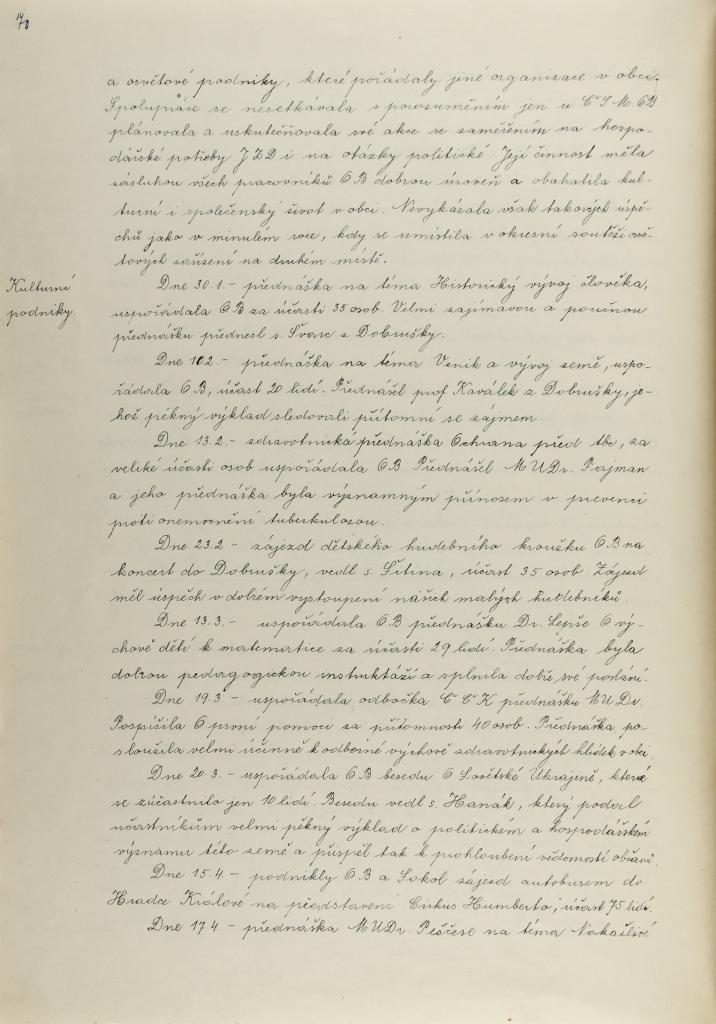 70
a osvětové podniky, které pořádaly jiné organizace v obci.
Spolupráce se nesetkávala s porozuměním jen u ČSM. OB
plánovala a uskutečňovala své akce se zaměřením na hospo-
dářské potřeby JZD i na otázky politické. Její činnost měla
zásluhou všech pracovníků OB dobrou úroveň a obohatila kul-
turní i společenský život v obci. Nevykázala však takových úspě-
chů jako v minulém roce, kdy se umístila v okresní soutěži osvě-
tových zařízení na druhém místě.
Kulturní
podniky.
Dne 30.1. – přednáška na téma Historický vývoj člověka,
uspořádala OB za účasti 35 osob. Velmi zajímavou a poučnou
přednášku přednesl s. Švarc z Dobrušky.
Dne 10.2. – přednáška na téma Vznik a vývoj země, uspo-
řádala OB, účast 20 lidí. Přednášel prof. Kaválek z Dobrušky, je-
hož pěkný výklad sledovali přítomní se zájmem.
Dne 13.2. – zdravotnická přednáška Ochrana před tbc, za
veliké účasti osob uspořádala OB. Přednášel MUDr. Pajman
a jeho přednáška byla významným přínosem v prevenci
proti onemocnění tuberkulosou.
Dne 23.2 – zájezd dětského hudebního kroužku OB na
koncert do Dobrušky, vedl s. Šitina, účast 35 osob. Zájezd
měl úspěch v dobrém vystoupení našich malých hudebníků.
Dne 13.3. – uspořádala OB přednášku Dr. Lepše O vý-
chově dětí k matematice za účasti 29 lidí. Přednáška byla
dobrou pedagogickou instruktáží a splnila dobře své poslání.
Dne 19.3 – uspořádala odbočka ČČK přednášku MUDr.
Pospíšila O první pomoci za přítomnosti 40 osob. Přednáška po-
sloužila velmi účinně k odborné výchově zdravotnických hlídek v obci.
Dne 20.3. – uspořádala OB besedu O Sovětské Ukrajině, které
se zúčastnilo jen 10 lidí. Besedu vedl s. Hanák, který podal
účastníkům velmi pěkný výklad o politickém a hospodářském
významu této země a přispěl tak k prohloubení vědomostí občanů.
Dne 15.4. – podnikly OB a Sokol zájezd autobusem do
Hradce Králové na představení Cirkus Humberto, účast 75 lidí.
Dne 17.4. – přednáška MUDr. na téma Nakažlivé